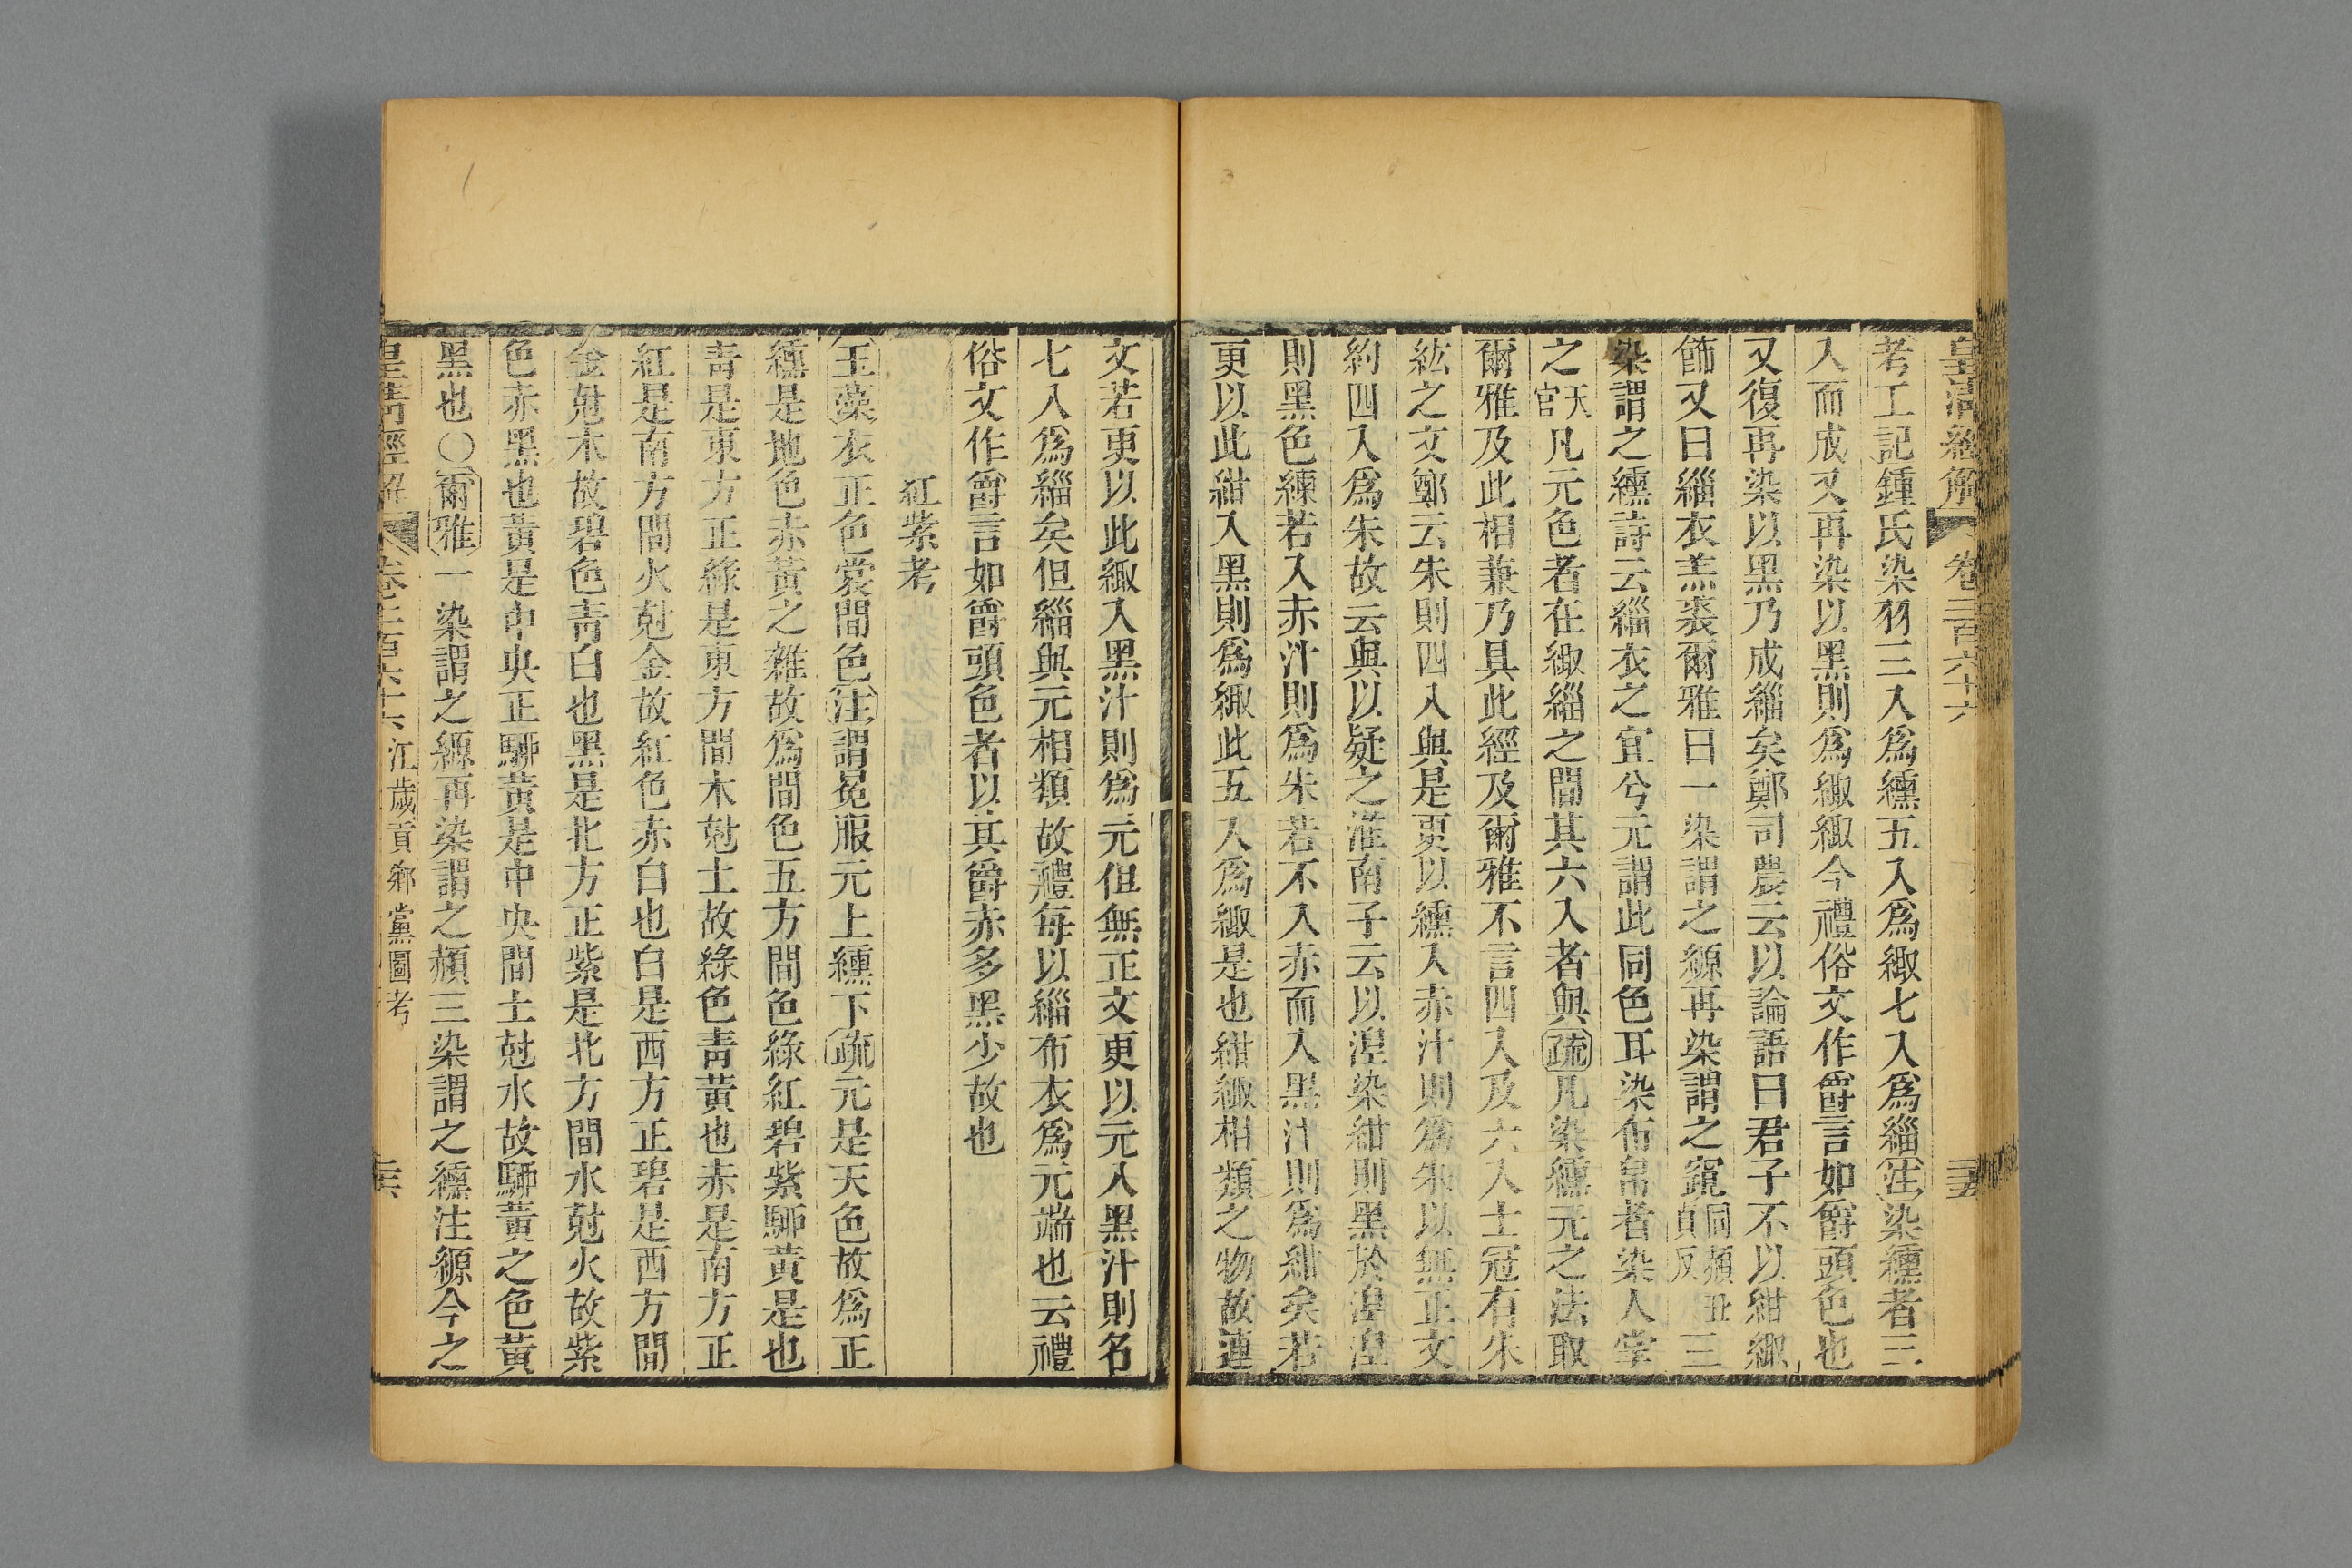 皇清經解 卷二百六十六 三五
考工記鍾氏染羽三入爲纁五入爲緅七入爲緇注染纁者三
入而成又再染以黑則爲緅緅今禮俗文作爵言如爵頭色也
又復再染以黑乃成緇矣鄭司農云以論語曰君子不以紺緅
飾又曰緇衣羔裘爾雅曰一染謂之縓再染謂之竀同赬丑貞反三
染謂之纁詩云緇衣之宜兮元謂此同色耳染布帛者染人掌
之天官凡元色者在緅緇之間其六入者與疏凡染纁元之法取
爾雅及此相兼乃具此經及爾雅不言四入及六入士冠有朱
紘之文鄭云朱則四入與是更以纁入赤汁則爲朱以無正文
約四入爲朱故云與以疑之淮南子云以涅染紺則黑於涅涅
則黑色纁若入赤汁則爲朱若不入赤而入黑汁則爲紺矣若
更以此紺入黑則爲緅此五入爲緅是也紺緅相類之物故連
文若更以此緅入黑汁則爲元但無正文更以元入黑汁則名
七入爲緇矣但緇與元相類故禮每以緇布衣爲元端也云禮
俗文作爵言如爵頭色者以其爵赤多黑少故也
紅紫考
玉藻衣正色裳間色注謂冕服元上纁下疏元是天色故爲正
纁是地色赤黃之雜故爲間色五方間色綠紅碧紫騮黃是也
靑是東方正綠是東方間木尅土故綠色靑黃也赤是南方正
紅是南方間火尅金故紅色赤白也白是西方正碧是西方間
金尅木故碧色靑白也黑是北方正紫是北方間水尅火故紫
色赤黑也黃是中央正騮黃是中央間土尅水故騮黃之色黃
黑也○爾雅一染謂之縓再染謂之赬三染謂之纁注縓今之
皇淸經解 卷二百六十六 江歲貢鄉黨圖考 三六